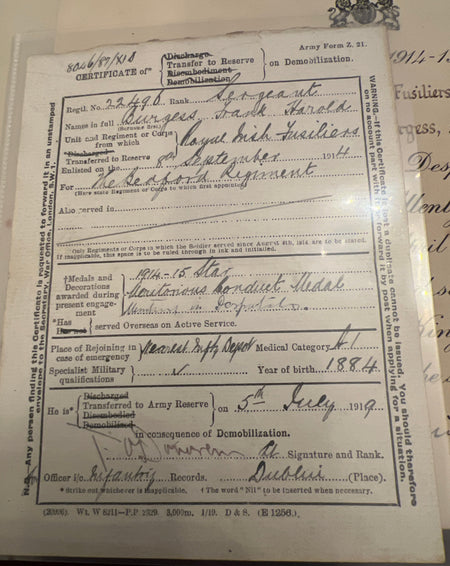 Army Form Z. 21.
8046/87/XI D
CERTIFICATE of*
Discharge
Transfer to Reserve
Disembodiment
Demobilization
on Demobilization.
Regtl. No. 22496 Rank Sergeant
Names in full Burgess Frank Harold
(Surname first)
Unit and Regiment or Corps from which Royal Irish Fusiliers
*Discharged
Transferred to Reserve
Enlisted on the 8th September 1914
For The Bedford Regiment
(Here state Regiment or Corps to which first appointed)
Also served in
Only Regiments or Corps in which the Soldier served since August 4th, 1914, are to be stated.
If inapplicable, this space is to be ruled through in ink and initialled.
†Medals and Decorations awarded during present engagement
1914-15 Star
Meritorious Conduct Medal
Mentioned in
*Has
Has not
served Overseas on Active Service.
Place of Rejoining in case of emergency Nearest Infty Depot Medical Category A 1
Specialist Military qualifications Year of birth 1884
He is*
Discharged
Transferred to Army Reserve
Disembodied
Demobilized
on 5th July 1919
in consequence of Demobilization.
Signature and Rank.
Officer i/c Infantry Records. Dublin (Place).
*Strike out whichever is inapplicable. † The word "Nil" to be inserted when necessary.
Wt. W 8211—P.P 2329. 3,000m. 1/19. D & S. (E 1256.)
N.B.—Any person finding this Certificate is requested to forward it in an unstamped envelope to the Secretary, War Office, London, S.W.1.
WARNING.—If this Certificate is lost a duplicate cannot be issued. You should therefore on no account part with it or forward it by post when applying for a situation.
1914-1
Fusiliers